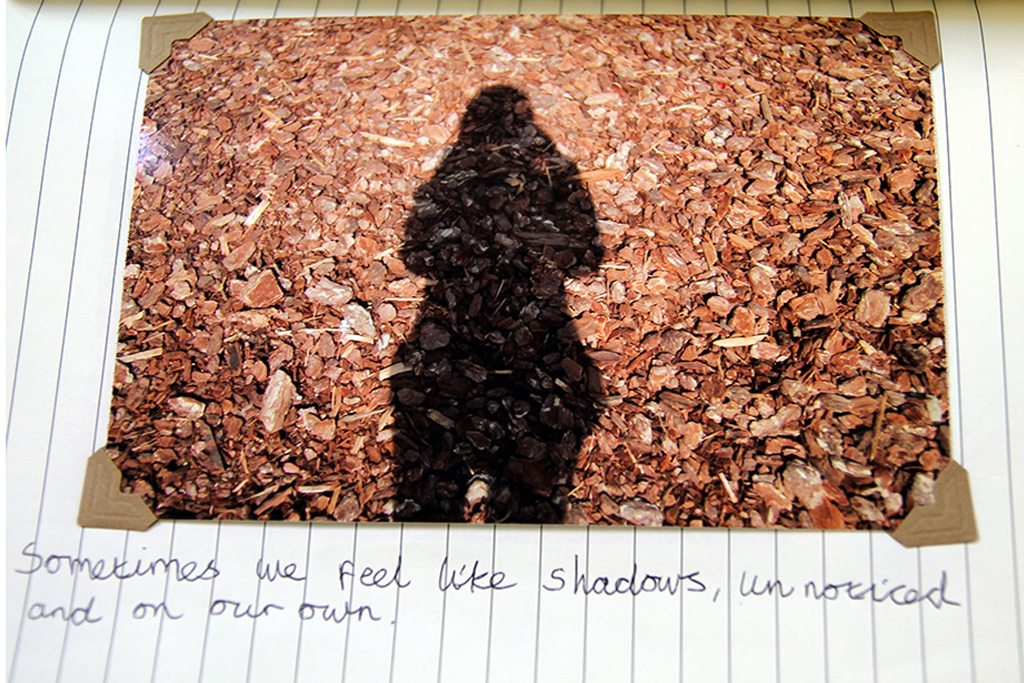 Sometimes we feel like shadows, unnoticed
and on our own.